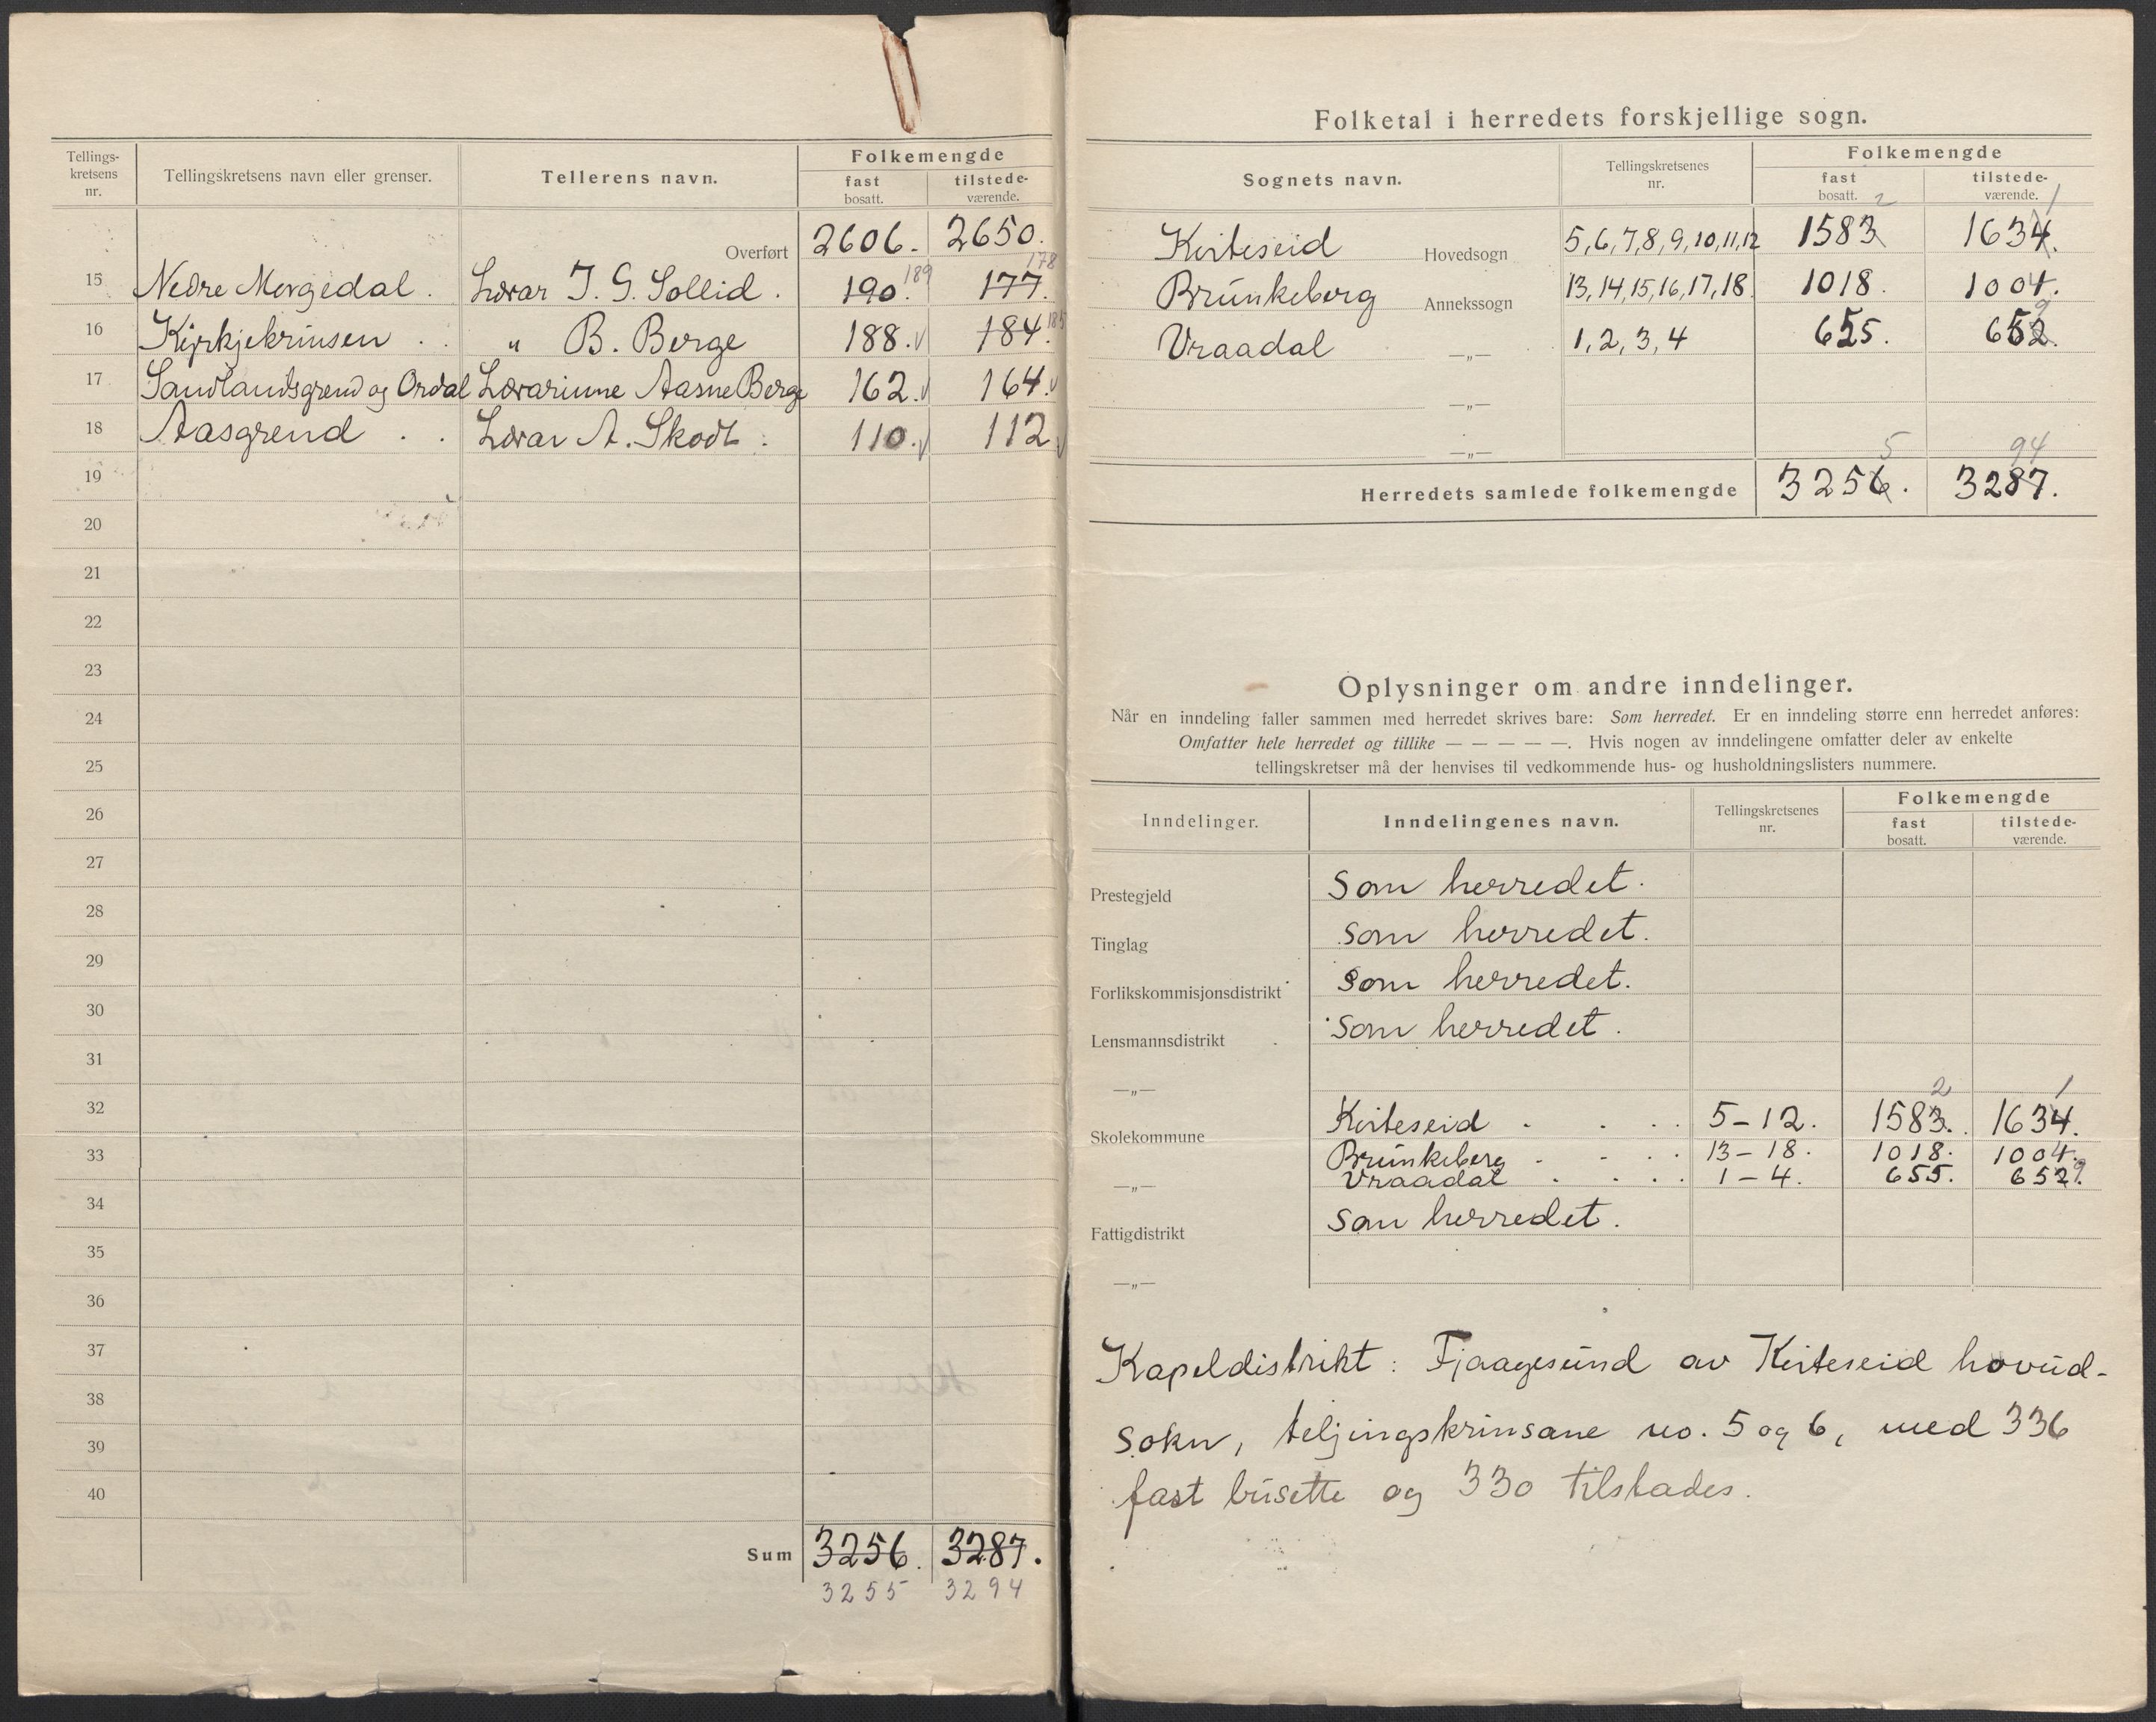 Tellings-
kretsens
nr.
Tellingskretsens navn eller grenser.
Tellerens navn.
Folkemengde
fast
bosatt.
tilstede-
værende.
Overført 2606. 2650.
15 Nedre Morgedal. Lærar T. G. Sollid. 190. 189 177. 178
16 Kyrkjekrinsen . . " B. Berge 188. 184. 185
17 Sandlandsgrend og Ordal Lærarinne Aasne Berge 162. 164.
18 Aasgrend . . Lærar A. Skodt. 110. 112
19
20
21
22
23
24
25
26
27
28
29
30
31
32
33
34
35
36
37
38
39
40
Sum 3256. 3287.
3255 3294
Folketal i herredets forskjellige sogn.
Sognets navn.
Tellingskretsenes
nr.
Folkemengde
fast
bosatt.
tilstede-
værende.
2 1
Kviteseid Hovedsogn 5,6,7,8,9,10,11,12 1583 1634.
Brunkeberg Annekssogn 13,14,15,16,17,18. 1018. 1004.
9
Vraadal —„— 1, 2, 3, 4 655. 652.
—„—
—„—
5 94
Herredets samlede folkemengde 3256. 3287.
Oplysninger om andre inndelinger.
Når en inndeling faller sammen med herredet skrives bare: Som herredet. Er en inndeling større enn herredet anføres:
Omfatter hele herredet og tillike — — — — —. Hvis nogen av inndelingene omfatter deler av enkelte
tellingskretser må der henvises til vedkommende hus- og husholdningslisters nummere.
Inndelinger.
Inndelingenes navn.
Tellingskretsenes
nr.
Folkemengde
fast
bosatt.
tilstede-
værende.
Prestegjeld Som herredet.
Tinglag Som herredet.
Forlikskommisjonsdistrikt Som herredet.
Lensmannsdistrikt Som herredet.
—„—
2 1
Skolekommune Kviteseid . . . . 5-12. 1583. 1634.
Brunkeberg . . . . 13-18. 1018. 1004.
—„— Vraadal . . . . 1-4. 655. 652. 9
Fattigdistrikt Som herredet.
—„—
Kapeldistrikt: Fjaagesund av Kviteseid hovud-
sokn, teljingskrinsane no. 5 og 6, med 336
fast busette og 330 tilstades.